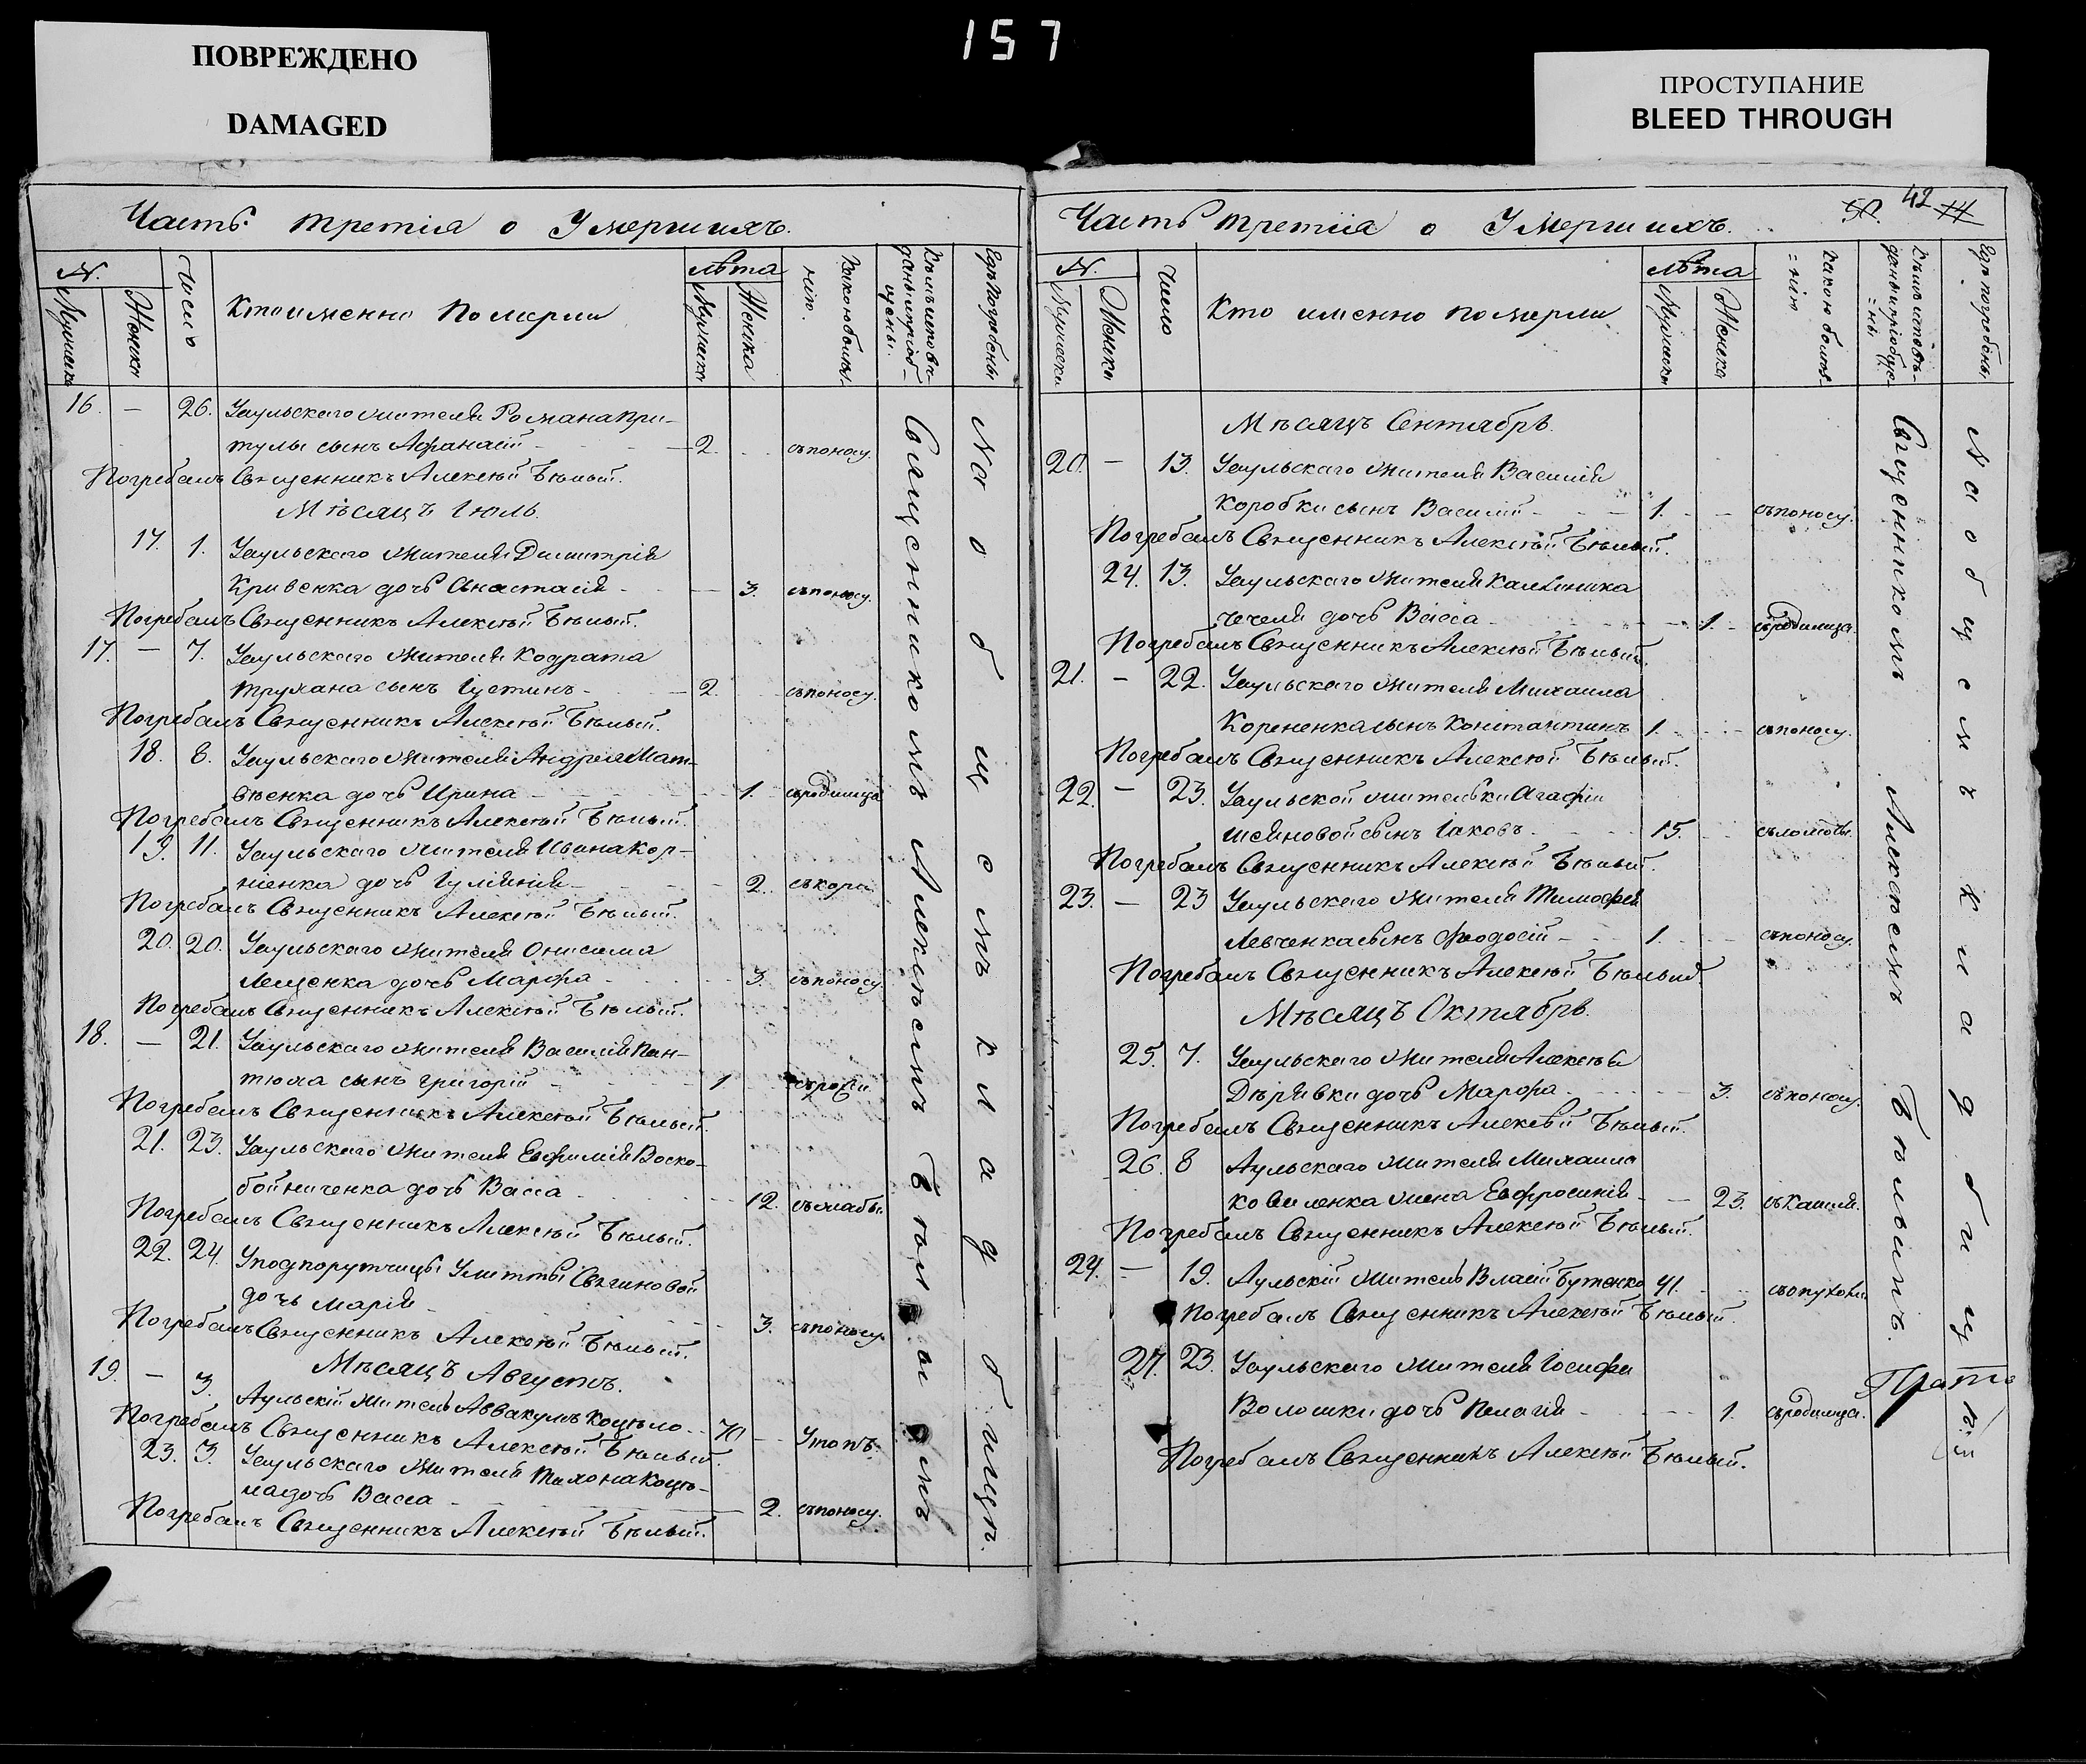 ПОВРЕЖДЕНО
DAMAGED
157
ПРОСТУПАНИЕ
BLEED THROUGH
Часть третіа о Умершихъ.
№.
Мужеска
Женска
Число
Кто именно Померли
лѣта
Мужеска
Женска
Какою болѣз
нію.
Кѣмъ исповѣ-
даны и пріоб-
щены.
Гдѣ Погребены
16. — 26. Уаульскаго жителя Романа При-
тулы сынъ Афанасій 2. съ поносу.
Погребалъ Священникъ Алексѣй Бѣлый.
Мѣсяцъ Іюль.
17. 1. Уаульскаго жителя Димитрія
Кривенка дочь Анастасія 3. съ поносу.
Погребалъ Священникъ Алексѣй Бѣлый.
17. — 7. Уаульскаго жителя Кодрата
Трухана сынъ Іустинъ 2. съ поносу.
Погребалъ Священникъ Алексѣй Бѣлый.
18. 8. Уаульскаго жителя Андрея Мат-
вѣенка дочь Ирина 1. съ родимца
Погребалъ Священникъ Алексѣй Бѣлый.
19. 11. Уаульскаго жителя Ивана Кор-
нѣенка дочь Іуліянія 2. съ кори
Погребалъ Священникъ Алексѣй Бѣлый.
20. 20. Уаульскаго жителя Онисима
Лещенка дочь Марфа 3. съ поносу.
Погребалъ Священникъ Алексѣй Бѣлый.
18. — 21. Уаульскаго жителя Василія Пан-
тюха сынъ Григорій 1
Погребалъ Священникъ Алексѣй Бѣлый.
21. 23. Уаульскаго жителя Евфимія Воско-
бойниченка дочь Васса 12.
Погребалъ Священникъ Алексѣй Бѣлый.
22. 24. Уподпорутчицы
дочь Марія 3. съ поносу
Погребалъ Священникъ Алексѣй Бѣлый.
Мѣсяцъ Августъ.
19. — 3. Аульскій житель Аввакумъ Коцюло 70 — Утопъ.
Погребалъ Священникъ Алексѣй Бѣлый.
23. 3. Уаульскаго жителя Тихона Коцю-
ла дочь Васса 2. съ поносу.
Погребалъ Священникъ Алексѣй Бѣлый.
Священникомъ Алексѣемъ Бѣлымъ
На общемъ кладбищѣ.
42
Часть третіа о Умершихъ.
№.
Мужеска
Женска
Число
Кто именно померли
лѣта
Мужеска
Женска
Какою болѣз
=нію
Кѣмъ исповѣ-
даны и пріобще
=ны
Гдѣ погребены
Мѣсяцъ Сентябрь.
20. — 13. Уаульскаго жителя Василія
Коробки сынъ Василій 1. съ поносу.
Погребалъ Священникъ Алексѣй Бѣлый.
24. 13. Уаульскаго жителя Калиника
Чечеля дочь Васса 1. съ родимца.
Погребалъ Священникъ Алексѣй Бѣлый.
21. — 22. Уаульскаго жителя Михаила
Корененка сынъ Константинъ 1. съ поносу.
Погребалъ Священникъ Алексѣй Бѣлый.
22. — 23. Уаульской жительки Агафіи
сынъ Іаковъ 15. съ ломоты.
Погребалъ Священникъ Алексѣй Бѣлый.
23. — 23 Уаульскаго жителя Тимофея
Левченка сынъ Феодосій 1. съ поносу.
Погребалъ Священникъ Алексѣй Бѣлый.
Мѣсяцъ Октябрь.
25. 7. Уаульскаго жителя Алексѣя
Дѣривки дочь Марфа 3. съ поносу.
Погребалъ Священникъ Алексѣй Бѣлый.
26. 8 Аульскаго жителя Михаила
Коваленка жена Евфросинія 23. съ кашля.
Погребалъ Священникъ Алексѣй Бѣлый.
24. — 19. Аульскій житель Власій Бутенко 41. съ опухоли
Погребалъ Священникъ Алексѣй Бѣлый.
27. 23. Уаульскаго жителя Іосифа
Волошки дочь Пелагія 1. съ родимца.
Погребалъ Священникъ Алексѣй Бѣлый.
Священникомъ Алексѣемъ Бѣлымъ.
На общемъ кладбищѣ